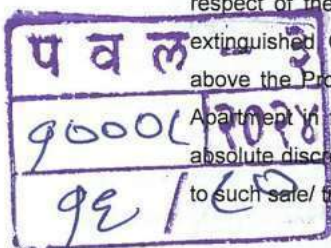 respect of the
प व ल - ३
extinguished
above the Pro
१०००८ २०२४
Apartment in
absolute discr
१६ / ८०
to such sale/ t